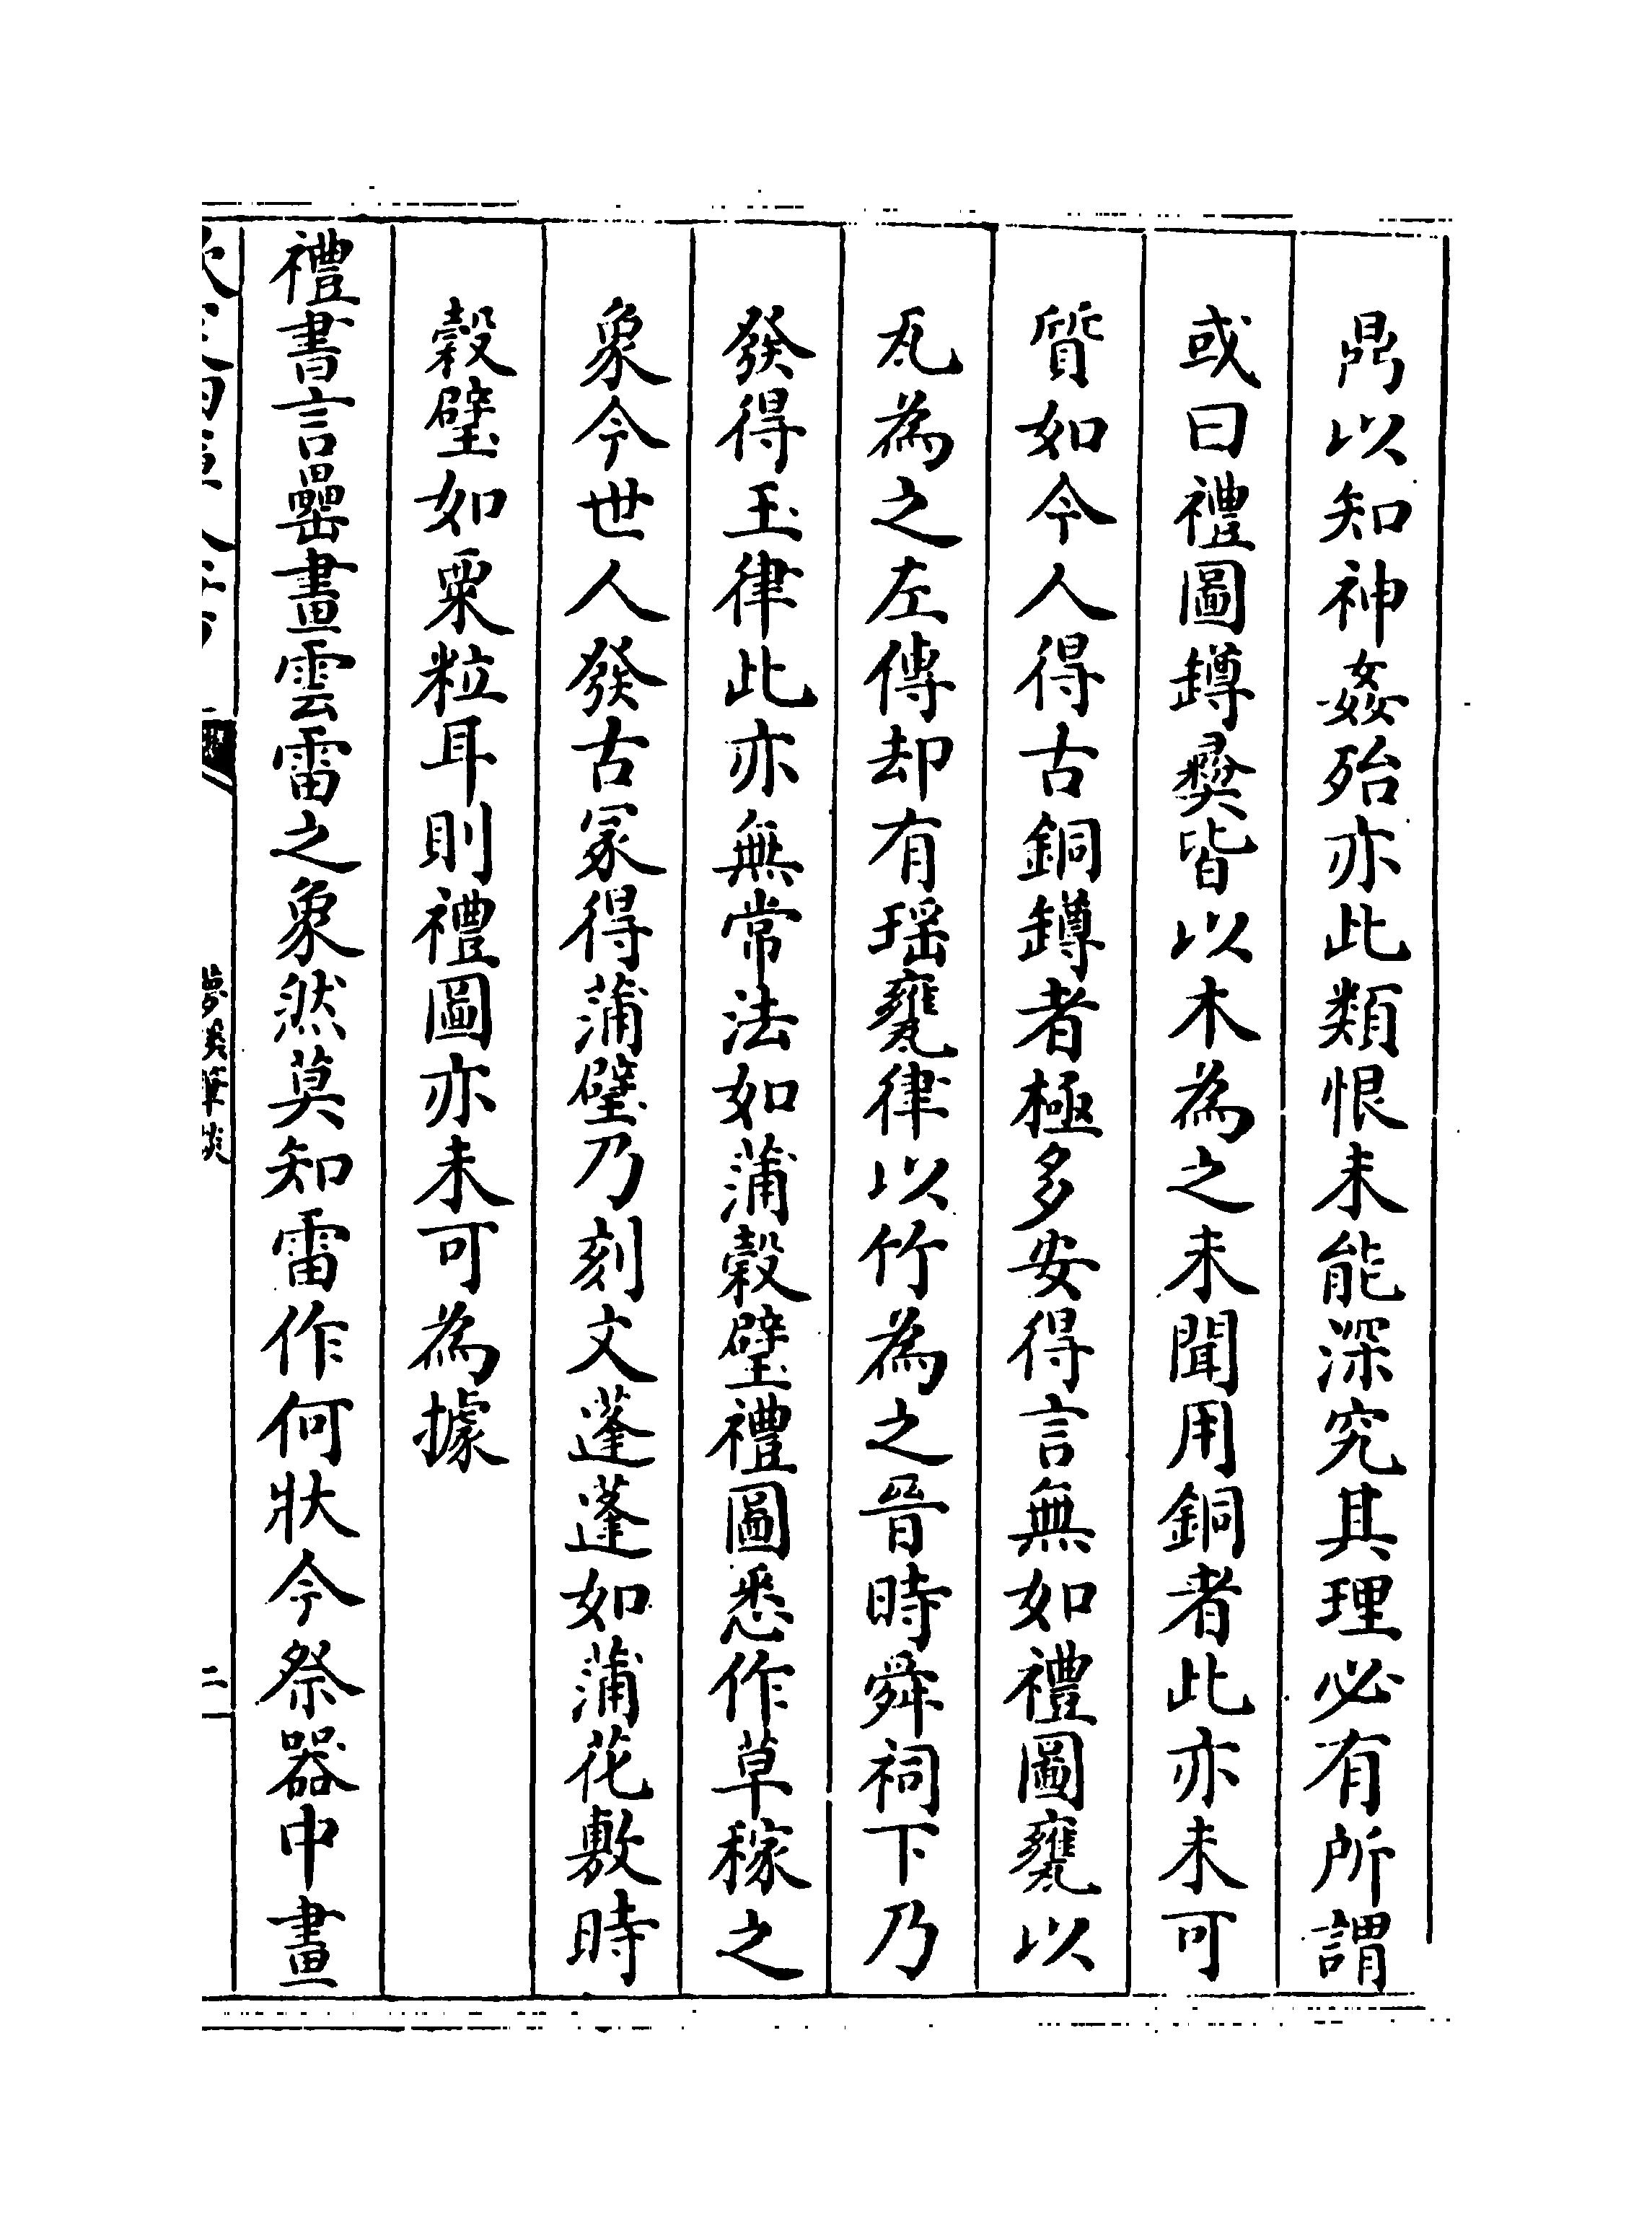 鼎以知神姦殆亦此類恨未能深究其理必有所謂
或曰禮圖罇彛皆以木為之未聞用銅者此亦未可
質如今人得古銅罇者極多安得言無如禮圖甕以
瓦為之左傳却有瑶甕律以竹為之晉時舜祠下乃
發得玉律此亦無常法如蒲糓璧禮圖悉作草稼之
象今世人發古冢得蒲璧乃刻文蓬蓬如蒲花敷時
糓璧如粟粒耳則禮圖亦未可為據
禮書言罍畫雲雷之象然莫知雷作何狀今祭器中畫